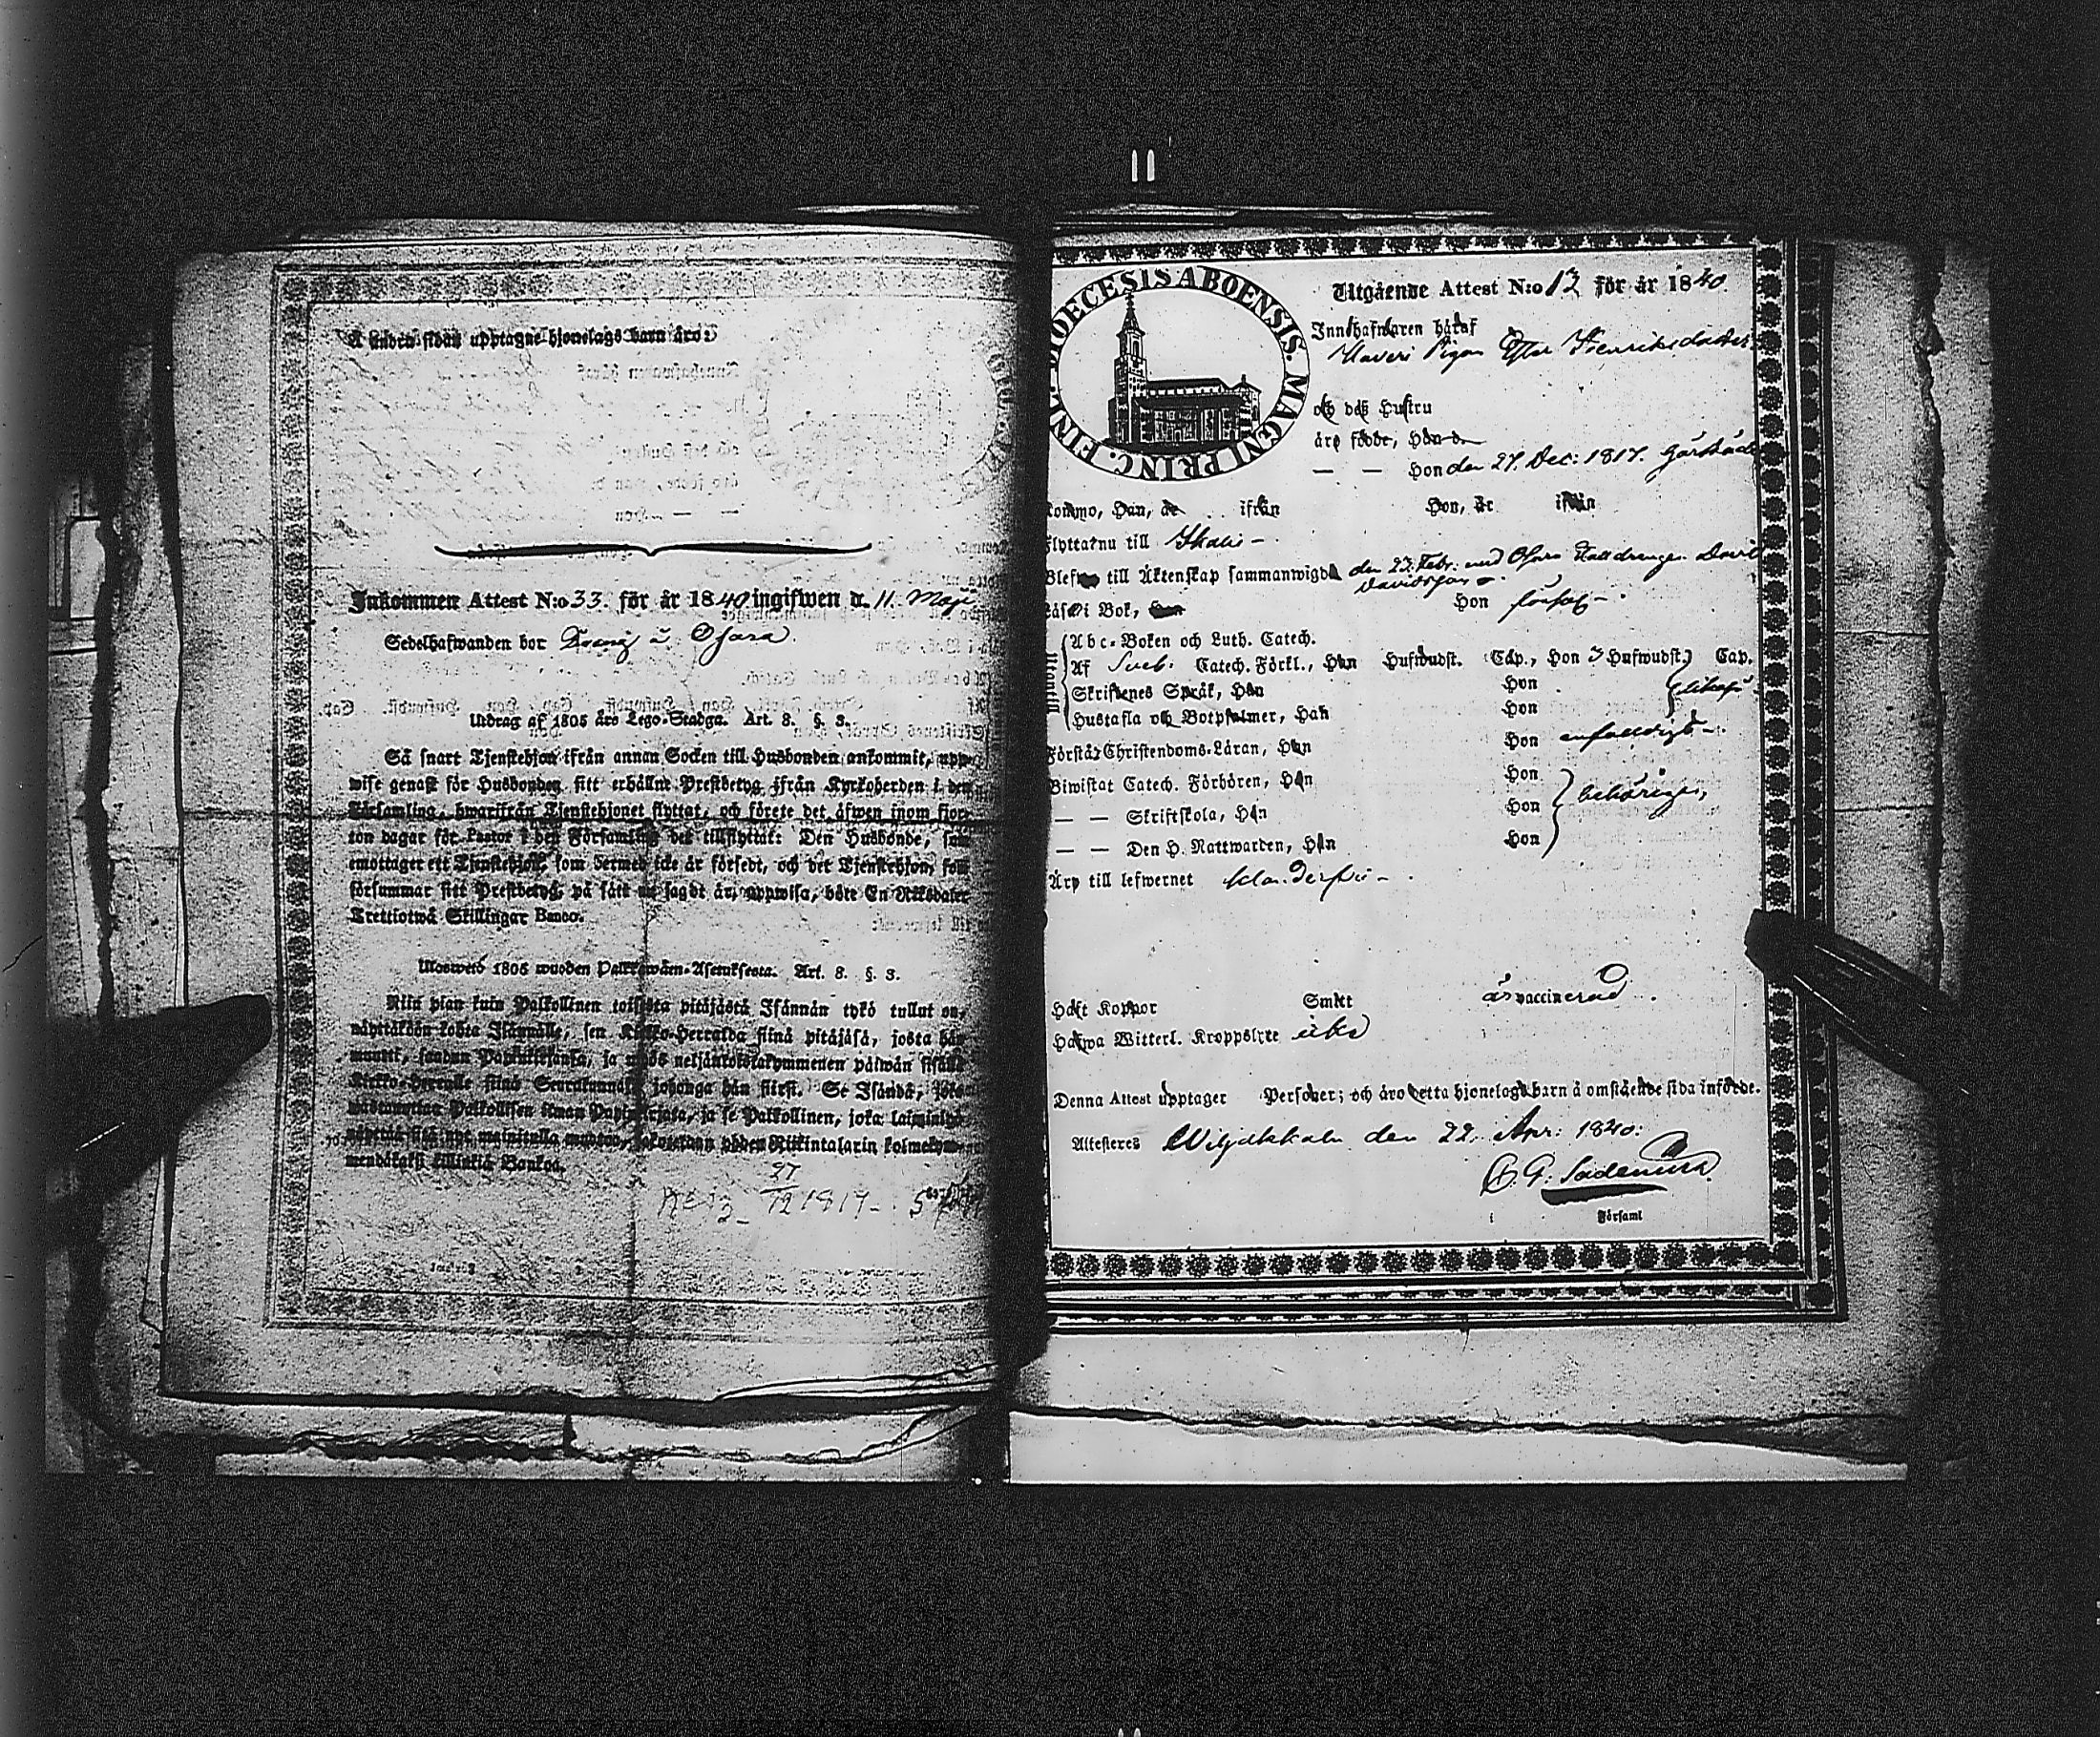 Å andra sidan upptagne hjonelags barn äro:
Inkommen Attest N:o 33. för år 1840 ingifwen d. 11. Maji
Sedelhafwanden bor å Ojara
Utdrag af 1805 års Lego-Stadga. Art. 8. §. 3.
Så snart Tjenstehjon ifrån annan Socken till Husbonden ankommit, upp-
wise genast för Husbonden sitt erhållne Prestbetyg ifrån Kyrkoherden i den
Församling, hwarifrån Tjenstehjonet flyttat, och förete det äfwen inom fjor-
ton dagar för Pastor i den Församling det tillflyttat: Den Husbonde, som
emottager ett Tjenstehjon, som dermed icke är försedt, och det Tjenstehjon, som
försummar sitt Prestbetyg, på sätt nu sagdt är, uppwisa, böte En Riksdaler
Trettiotwå Skillingar Banco.
Uloswető 1805 wuoden Palkkawäen-Asetuksesta. Art. 8. §. 3.
Niin pian kuin Palkollinen toisesta pitäjästä Isännän tykö tullut on,
näyttäköön kohta Isännälle, sen Kirkko-Herralda siinä pitäjäsä, josta hän
muutti, saadun Papinkirjansa, ja myös neljäntoistakymmenen päiwän sisällä
Kirkko-Herralle siinä Seurakunnasa johonga hän siirsi. Se Isändä, joka
wastanottaa Palkollisen ilman Papinkirjata, ja se Palkollinen, joka laiminlyö
näyttää sitä nyt mainitulla muodon, wetäköön yhden Riikintalarin kolmekym-
mendäkaksi killinkiä Bankoa.
27/12 1817
FINL. DIOECESIS ABOENSIS. MAGNI PRINC.
Utgående Attest N:o 13 för år 1840
Innehafwaren häraf
Pigan Henriksdotter
och deß Hustru
äro födde, Han d.
— — Hon den 27. Dec: 1817.
Kommo, Han, år ifrån Hon, år ifrån
Flytta nu till
Blefwo till Äktenskap sammanwigde den 23. Febr. med Ojara Davidsson
Läsa i Bok, Han Hon försvarl.
Abc-Boken och Luth. Catech.
Af Sveb. Catech. Förkl., Han Hufwudst. Cap., Hon 3 Hufwudst. Cap.
Skriftenes Språk, Han Hon
Hustafla och Botpsalmer, Han Hon
Förstår Christendoms-Läran, Han Hon enfaldigt
Biwistat Catech. Förhören, Han Hon behörigen,
— — Skriftskola, Han Hon
— — Den H. Nattwarden, Han Hon
Äro till lefwernet klanderfri
Haft Koppor Smitt är vaccinerad
Hafwa Witterl. Kroppslyte icke
Denna Attest upptager Personer; och äro detta hjonelags barn å omstående sida införde.
Attesteres Wiljakkala den 22. Apr: 1840:
Församl